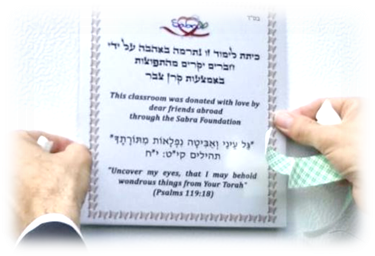 בס"ד
כיתת לימוד זו נתרמה באהבה על ידי
חברים יקרים מהתפוצות
באמצעות קרן צבר
This classroom was donated with love by
dear friends abroad
through the Sabra Foundation
"גַּל עֵינַי וְאַבִּיטָה נִפְלָאוֹת מִתּוֹרָתֶךָ"
תהילים קי"ט: י"ח
"Uncover my eyes, that I may behold
wondrous things from Your Torah"
(Psalms 119:18)